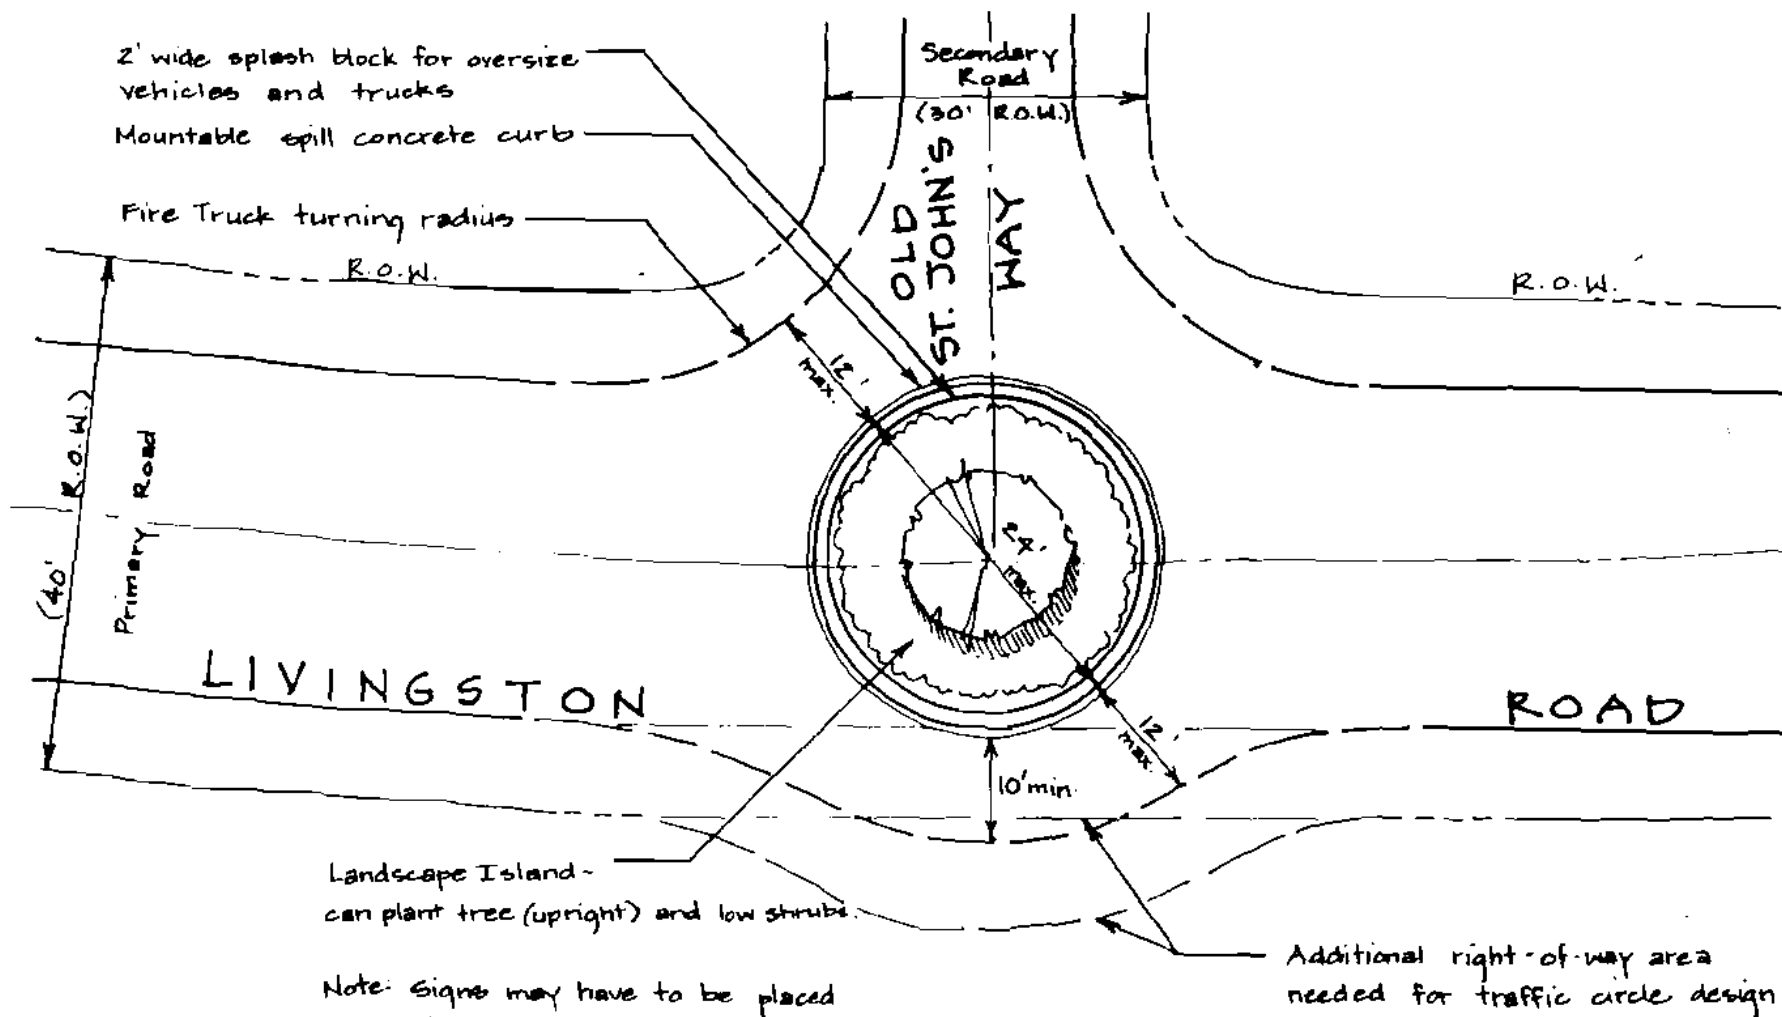 2' wide splash block for oversize
vehicles and trucks
Mountable spill concrete curb
Fire Truck turning radius
Secondary
Road
(30' R.O.W.)
OLD
ST. JOHN'S
WAY
R.O.W.
R.O.W.
12'
max.
(40' R.O.W.)
Primary Road
max.
LIVINGSTON
ROAD
12'
max.
10' min.
Landscape Island-
can plant tree (upright) and low shrubs.
Note: Signs may have to be placed
Additional right-of-way area
needed for traffic circle design